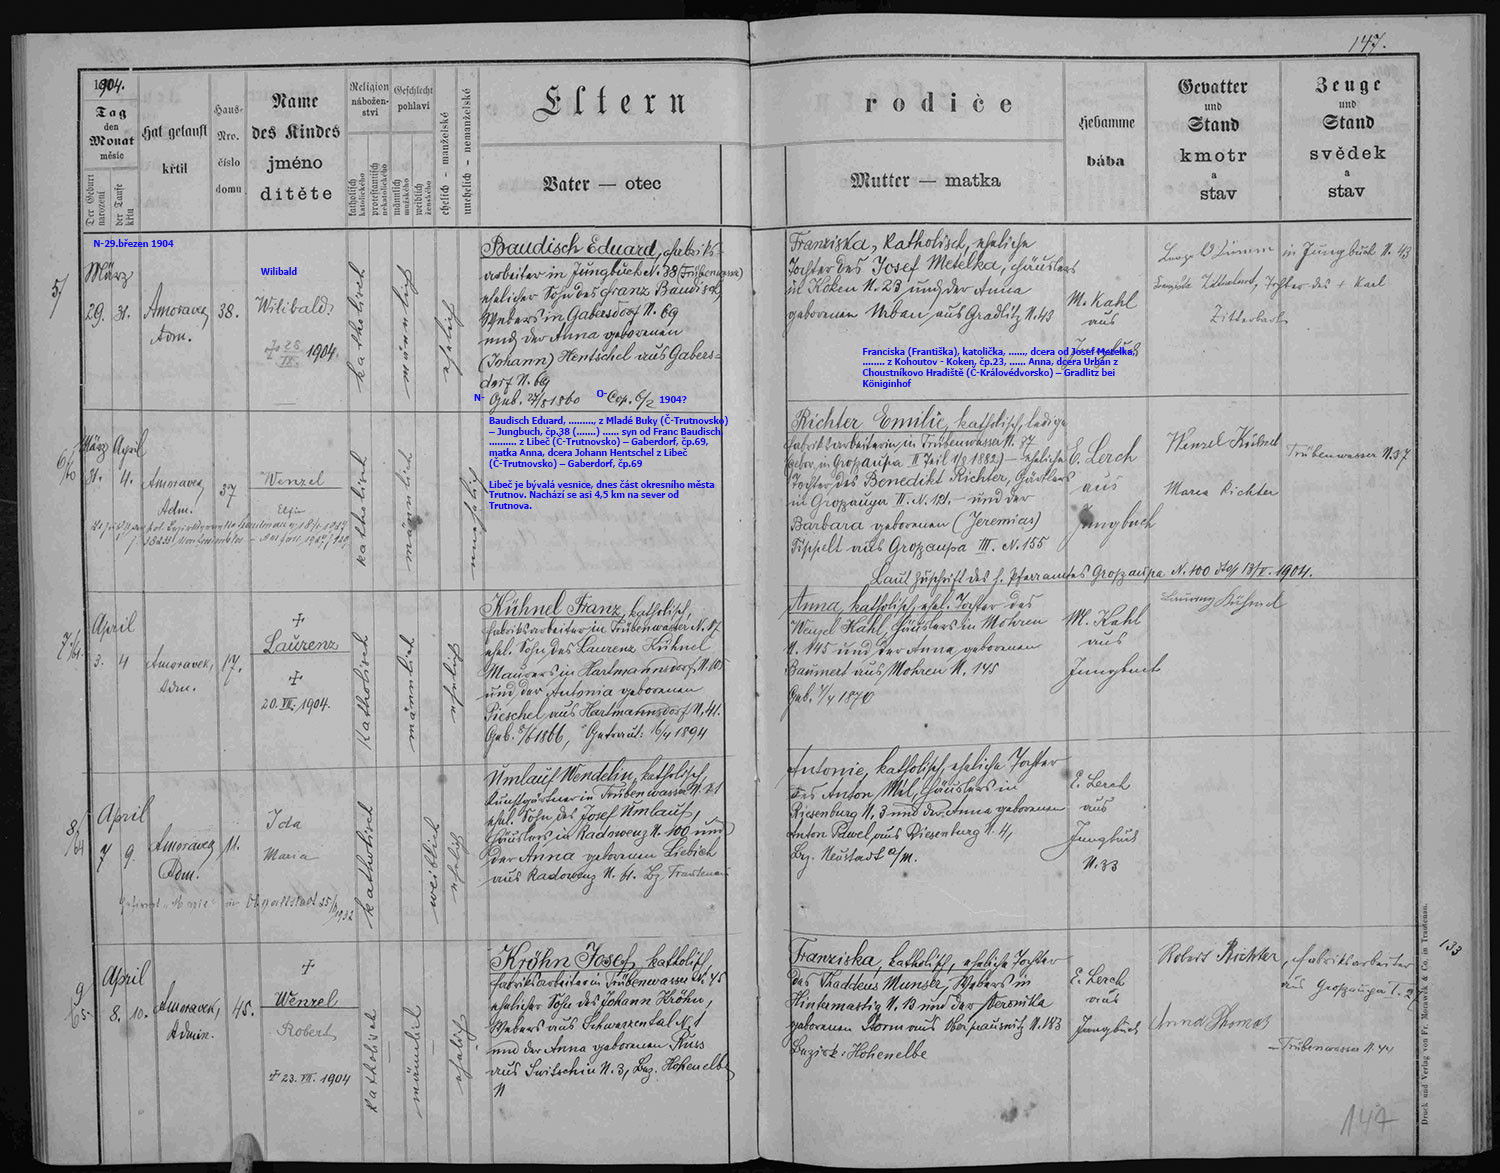 147.
1904.
Tag
den
Monat
měsíc
Der Geburt
narození
der Taufe
křtu
Hat getauft
křtil
Haus-
Nro.
číslo
domu
Name
des Kindes
jméno
dítěte
Religion
nábožen-
ství
katholisch
katolického
protestantisch
nekatolického
Geschlecht
pohlaví
männlich
mužského
weiblich
ženského
ehelich - manželské
unehelich - nemanželské
Eltern
rodiče
Vater — otec
Mutter — matka
Hebamme
bába
Gevatter
und
Stand
kmotr
a
stav
Zeuge
und
Stand
svědek
a
stav
N-29.březen 1904
5/
März
29. 31.
Amoravec
Adm.
38.
Wilibald
Wilibald
1904.
katholisch
männlich
ehelich
Baudisch Eduard, Fabriks-
arbeiter in Jungbuch N. 38 (Trübenwasser)
ehelicher Sohn des Franz Baudisch
Webers in Gabersdorf N. 69
und der Anna geborenen
(Johann) Hentschel aus Gabers-
dorf N. 69
N- Geb. 27/8 1860 O- Cop. 6/2 1904?
Franziska, katholisch, eheliche
Tochter des Josef Metelka, Häuslers
in Koken N. 23 und der Anna
geborenen Urban aus Gradlitz N. 43
M. Kahl
aus
Jungbuch
in Jungbuch N. 43
Tochter des + Karl
Franciska (Františka), katolička, ......, dcera od Josef Metelka,
........ z Kohoutov - Koken, čp.23, ...... Anna, dcera Urbán z
Choustníkovo Hradiště (Č-Královédvorsko) – Gradlitz bei
Königinhof
Baudisch Eduard, ........., z Mladé Buky (Č-Trutnovsko)
– Jungbuch, čp.38 (.......) ...... syn od Franc Baudisch
.......... z Libeč (Č-Trutnovsko) – Gaberdorf, čp.69,
matka Anna, dcera Johann Hentschel z Libeč
(Č-Trutnovsko) – Gaberdorf, čp.69
Libeč je bývalá vesnice, dnes část okresního města
Trutnov. Nachází se asi 4,5 km na sever od
Trutnova.
März April
31. 4.
Amoravec,
Adm.
37
Wenzel
katholisch
männlich
unehelich
Richter Emilie, katholisch, ledige
Fabriksarbeiterin in Trübenwasser N. 37
(gebor. in Großaupa II Teil 1/9 1882) – eheliche
Tochter des Benedikt Richter, Gärtlers
in Großaupa II. N. 121. – und der
Barbara geborenen (Jeremias)
Tippelt aus Großaupa III. N. 155
Laut Zuschrift des h. Pfarramtes Großaupa N. 100 dto 13/V. 1904.
E. Lerch
aus
Jungbuch
Wenzel Kühnel
Trübenwasser N. 37
Maria Richter
April
3. 4
Amoravec,
Adm.
17.
+
Laurenz
+
20. VII. 1904.
katholisch
männlich
ehelich
Kühnel Franz, katholisch,
Fabriksarbeiter in Trübenwasser N. 17
ehel. Sohn des Laurenz Kühnel
Maurers in Hartmannsdorf N. 105
und der Antonia geborenen
Pieschel aus Hartmannsdorf N. 41.
Geb. 8/6 1866, Getraut: 16/4 1894
Anna, katholisch, ehel. Tochter des
Wenzel Kahl, Häuslers in Mohren
N. 145 und der Anna geborenen
Baumert aus Mohren N. 145
Geb. 4/4 1870
M. Kahl
aus
Jungbuch
Laurenz Kühnel
8/
April
7 9.
Amoravec
Adm.
11.
Ida
Maria
katholisch
weiblich
ehelich
Umlauf Wendelin, katholisch,
Kunstgärtner in Trübenwasser N. 11
ehel. Sohn des Josef Umlauf,
Häuslers in Radowenz N. 100 und
der Anna geborenen Liebich
aus Radowenz N. 61. Bz. Trautenau
Antonie, katholisch, eheliche Tochter
des Anton Mil, Häuslers in
Riesenburg N. 3 und der Anna geborenen
Anton Pawel aus Riesenburg N. 4,
Bz. Neustadt a/M.
E. Lerch
aus
Jungbuch
N. 33
9/
April
8. 10.
Amoravec,
Admin.
45.
+
Wenzel
Robert
+ 23. VII. 1904
katholisch
männlich
ehelich
Kröhn Josef, katholisch,
Fabriksarbeiter in Trübenwasser N. 45
ehelicher Sohn des Johann Kröhn,
Webers aus Schwarzental N. 1
und der Anna geborenen Russ
aus Switschin N. 3, Bez. Hohenelbe
Franziska, katholisch, eheliche Tochter
des Thaddeus Munser, Webers in
Hintermastig N. 13 und der Veronika
geborenen Storm aus Oberprausnitz N. 183
Bezirk: Hohenelbe
E. Lerch
aus
Jungbuch
Robert Richter, Fabriksarbeiter
aus Großaupa I. 27
Anna Thomas
Trübenwasser N. 44
133
147
Druck und Verlag von Fr. Morawek & Co. in Trautenau.